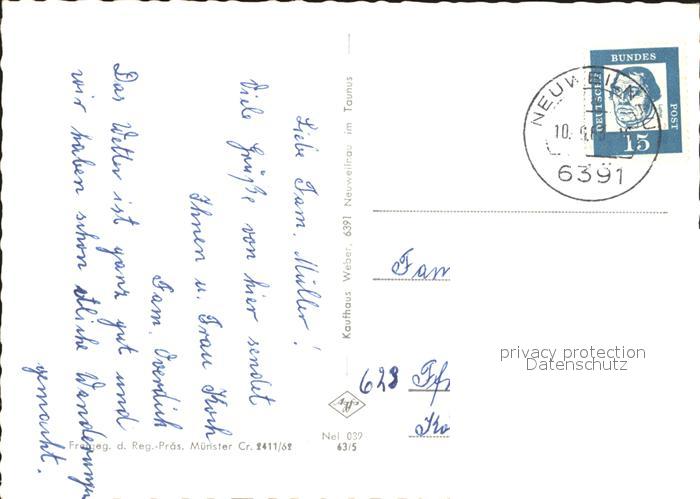 Liebe Fam. Müller!
Viele Grüße von hier sendet
Ihnen u. Frau Koch
Fam.
Das Wetter ist ganz gut und
wir haben schon etliche Wanderungen
gemacht.
Freigeg. d. Reg.-Präs. Münster Cr. 2411/62
Nel 039
63/5
Kaufhaus Weber, 6391 Neuweilnau im Taunus
NEUWEILNAU
10.
6391
DEUTSCHE
BUNDES
POST
15
Fam
623
privacy protection
Datenschutz